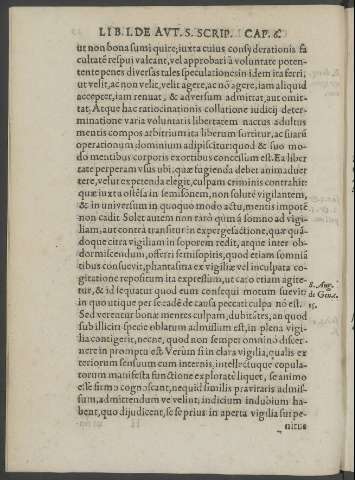 LIB. I. DE AVT. S. SCRIP. CAP. &
ut non bona sumi quire; iuxta cuius consyderationis fa
cultatē respui valeant, vel approbari à voluntate poten-
tente penes diversas tales speculationes in idem ita ferri,
ut velit, ac non velit, velit agere, ac nō agere, iam aliquid
accepter, iam renuat, & adversum admittat, aut omit-
tat. Atque hac ratiocinationis collatione iudicij deter-
minatione varia voluntatis libertatem nactus adultus
mentis compos arbitrium ita liberum sortitur, ac suarū
operationum dominium adipiscitur quod & suo mo-
dò mentibus corporis exortibus concessum est. Ea liber
tate perperam usus ubi, quæ fugienda debet animadver
tere, velut expetenda elegit, culpam criminis contrahit:
quæ iuxta ostēsa in semisōnem, non solutè vigilantem,
& in universum in quoquo modo actu, mentis impotē
non cadit. Solet autem non rarò qum à somno ad vigi-
liam, aut contrà transitur in expergefactione, quæ quā-
doque citra vigiliam in soporem redit, atque inter ob-
dormiscendum, offerri semisopitis, quod etiam somniā
tibus consuevit, phantasma ex vigiliæ vel inculpata co-
gitatione repositum ita expressum, ut caro etiam agite-
tur, & id sequatur quod eum consequi motum suevit
in quo utique per se cadē de causa peccati culpa nō est.
Sed verentur bonæ mentes culpam, dubitātes, an quod
sub illiciti specie oblatum admissum est, in plena vigi-
lia contigerit, necne, quod non semper omninò discer-
nere in promptu est Verùm si in clara vigilia, qualis ex
teriorum sensuum cum internis, intellectuque copula-
torum manifesta functione exploratè liquet, se animo
esse firmo cognoscant, nequid similis pravitatis admis-
sum, admittendum ve velint; indicium indubium ha-
bent, quo dijudicent, se se prius in aperta vigilia sui pe-
nitus
S. Aug.
de Gene.
15.